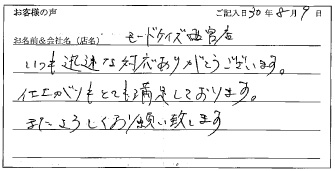 お客様の声 ご記入日30年8月9日
お名前&会社名(店名) モードケイズ西宮店
いつも迅速な対応ありがとうございます。
仕上がりもとても満足しております。
またよろしくお願い致します